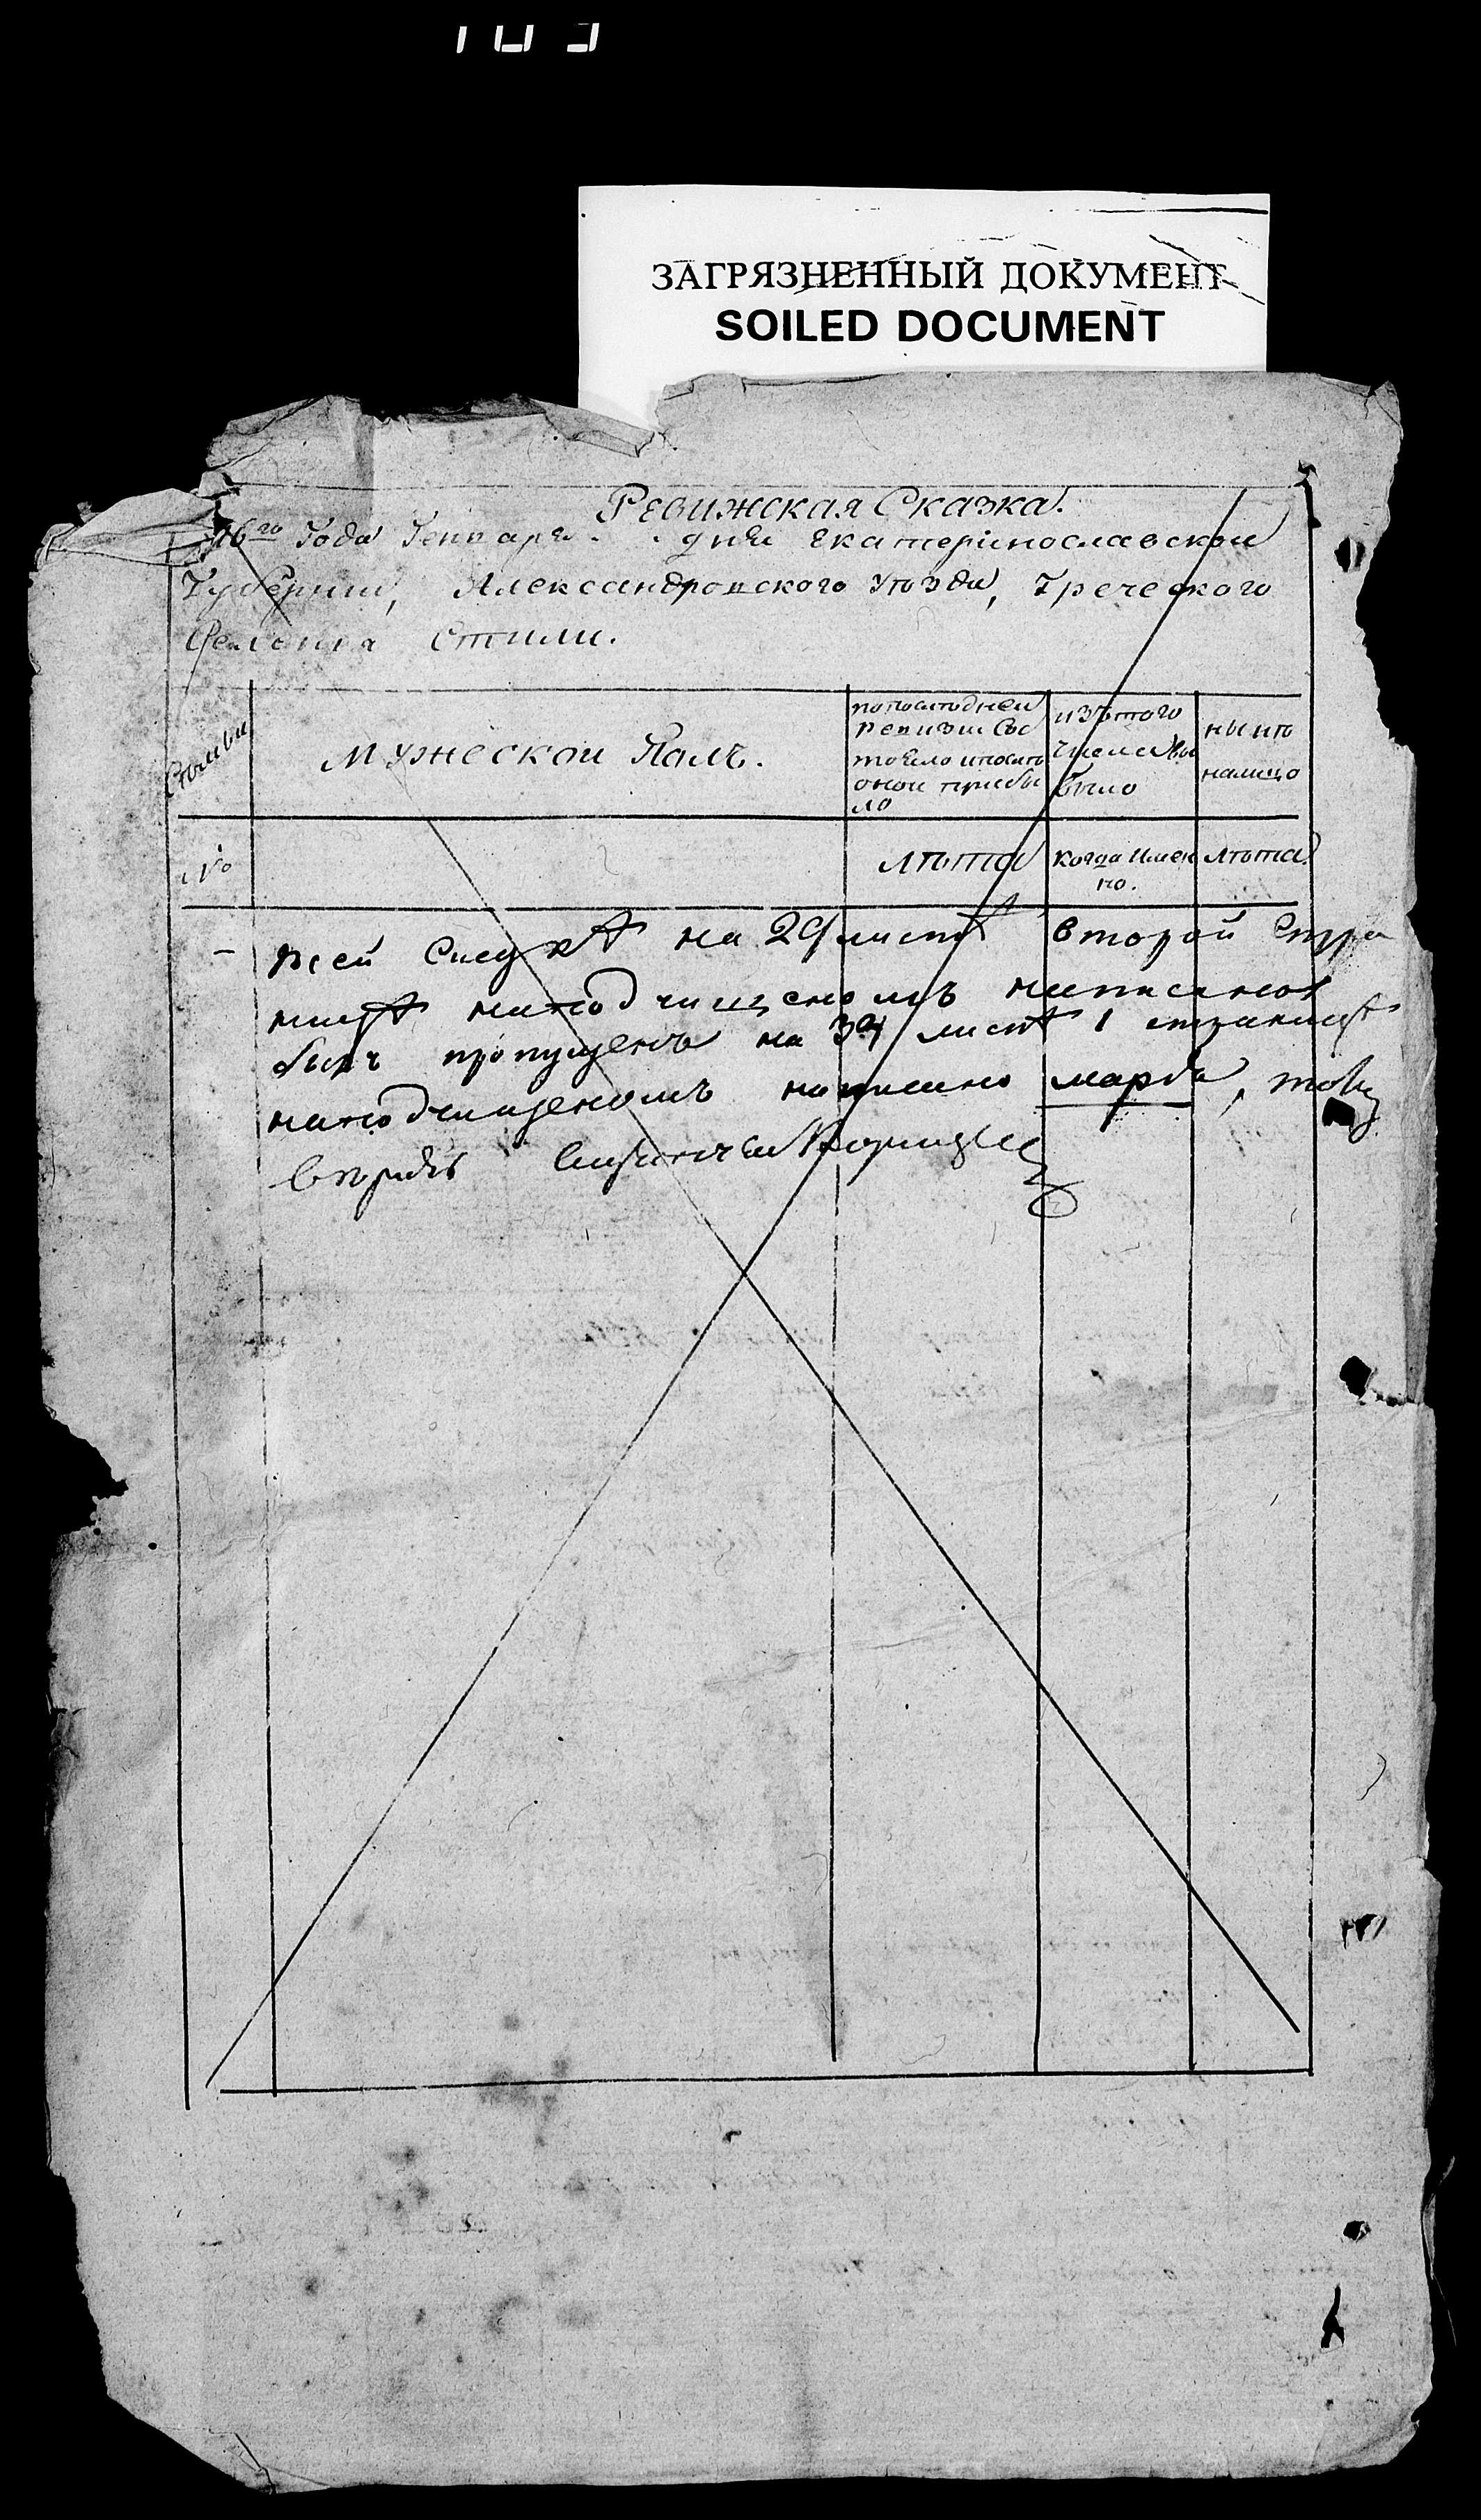 ЗАГРЯЗНЕННЫЙ ДОКУМЕНТ
SOILED DOCUMENT
Ревижская Сказка.
16го Года Генваря дня Екатеринославской
Губернии, Александровского Уѣзда, Греческого
Селения Стили.
Мужеской Полъ.
по последней
ревизии сос
тояло и после
оной прибы
ло
изъ того
числа вы
было
нынѣ
налицо
№
лѣта
когда имен
но.
лѣта
Всей на 29 листѣ второй стра
ницѣ на подчищеномъ написано
былъ пропущенъ на 34 листѣ 1 страницѣ
на подчищеномъ написано марфа,